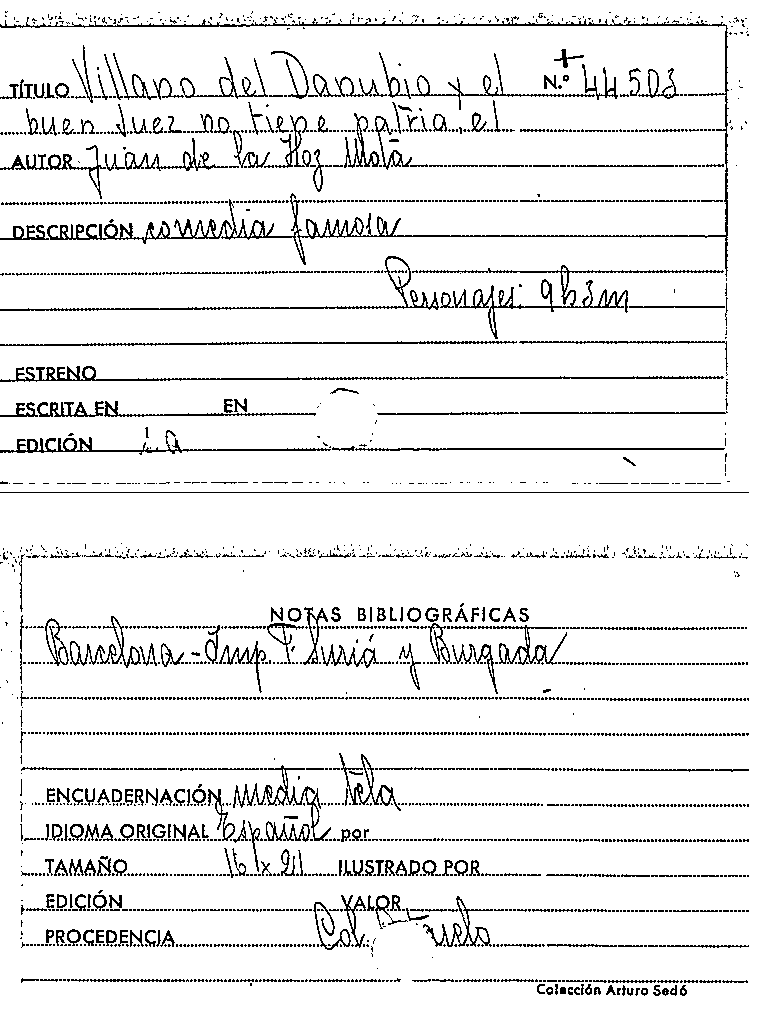 TÍTULO Villano del Danubio y el N.º 44503
buen Juez no tiene patria, el
AUTOR Juan de la Hoz Mota
DESCRIPCIÓN comedia famosa
Personajes: 9h3m
ESTRENO
ESCRITA EN EN
EDICIÓN s.a
NOTAS BIBLIOGRÁFICAS
Barcelona - Imp. F. Suriá y Burgada
ENCUADERNACIÓN media tela
IDIOMA ORIGINAL Español por
TAMAÑO 16 x 21 ILUSTRADO POR
EDICIÓN VALOR
PROCEDENCIA Col.
Colección Arturo Sedó